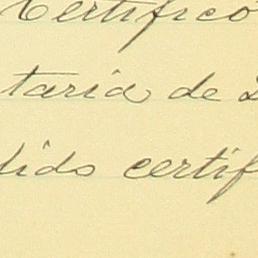 Certifico
taria de
dido certif